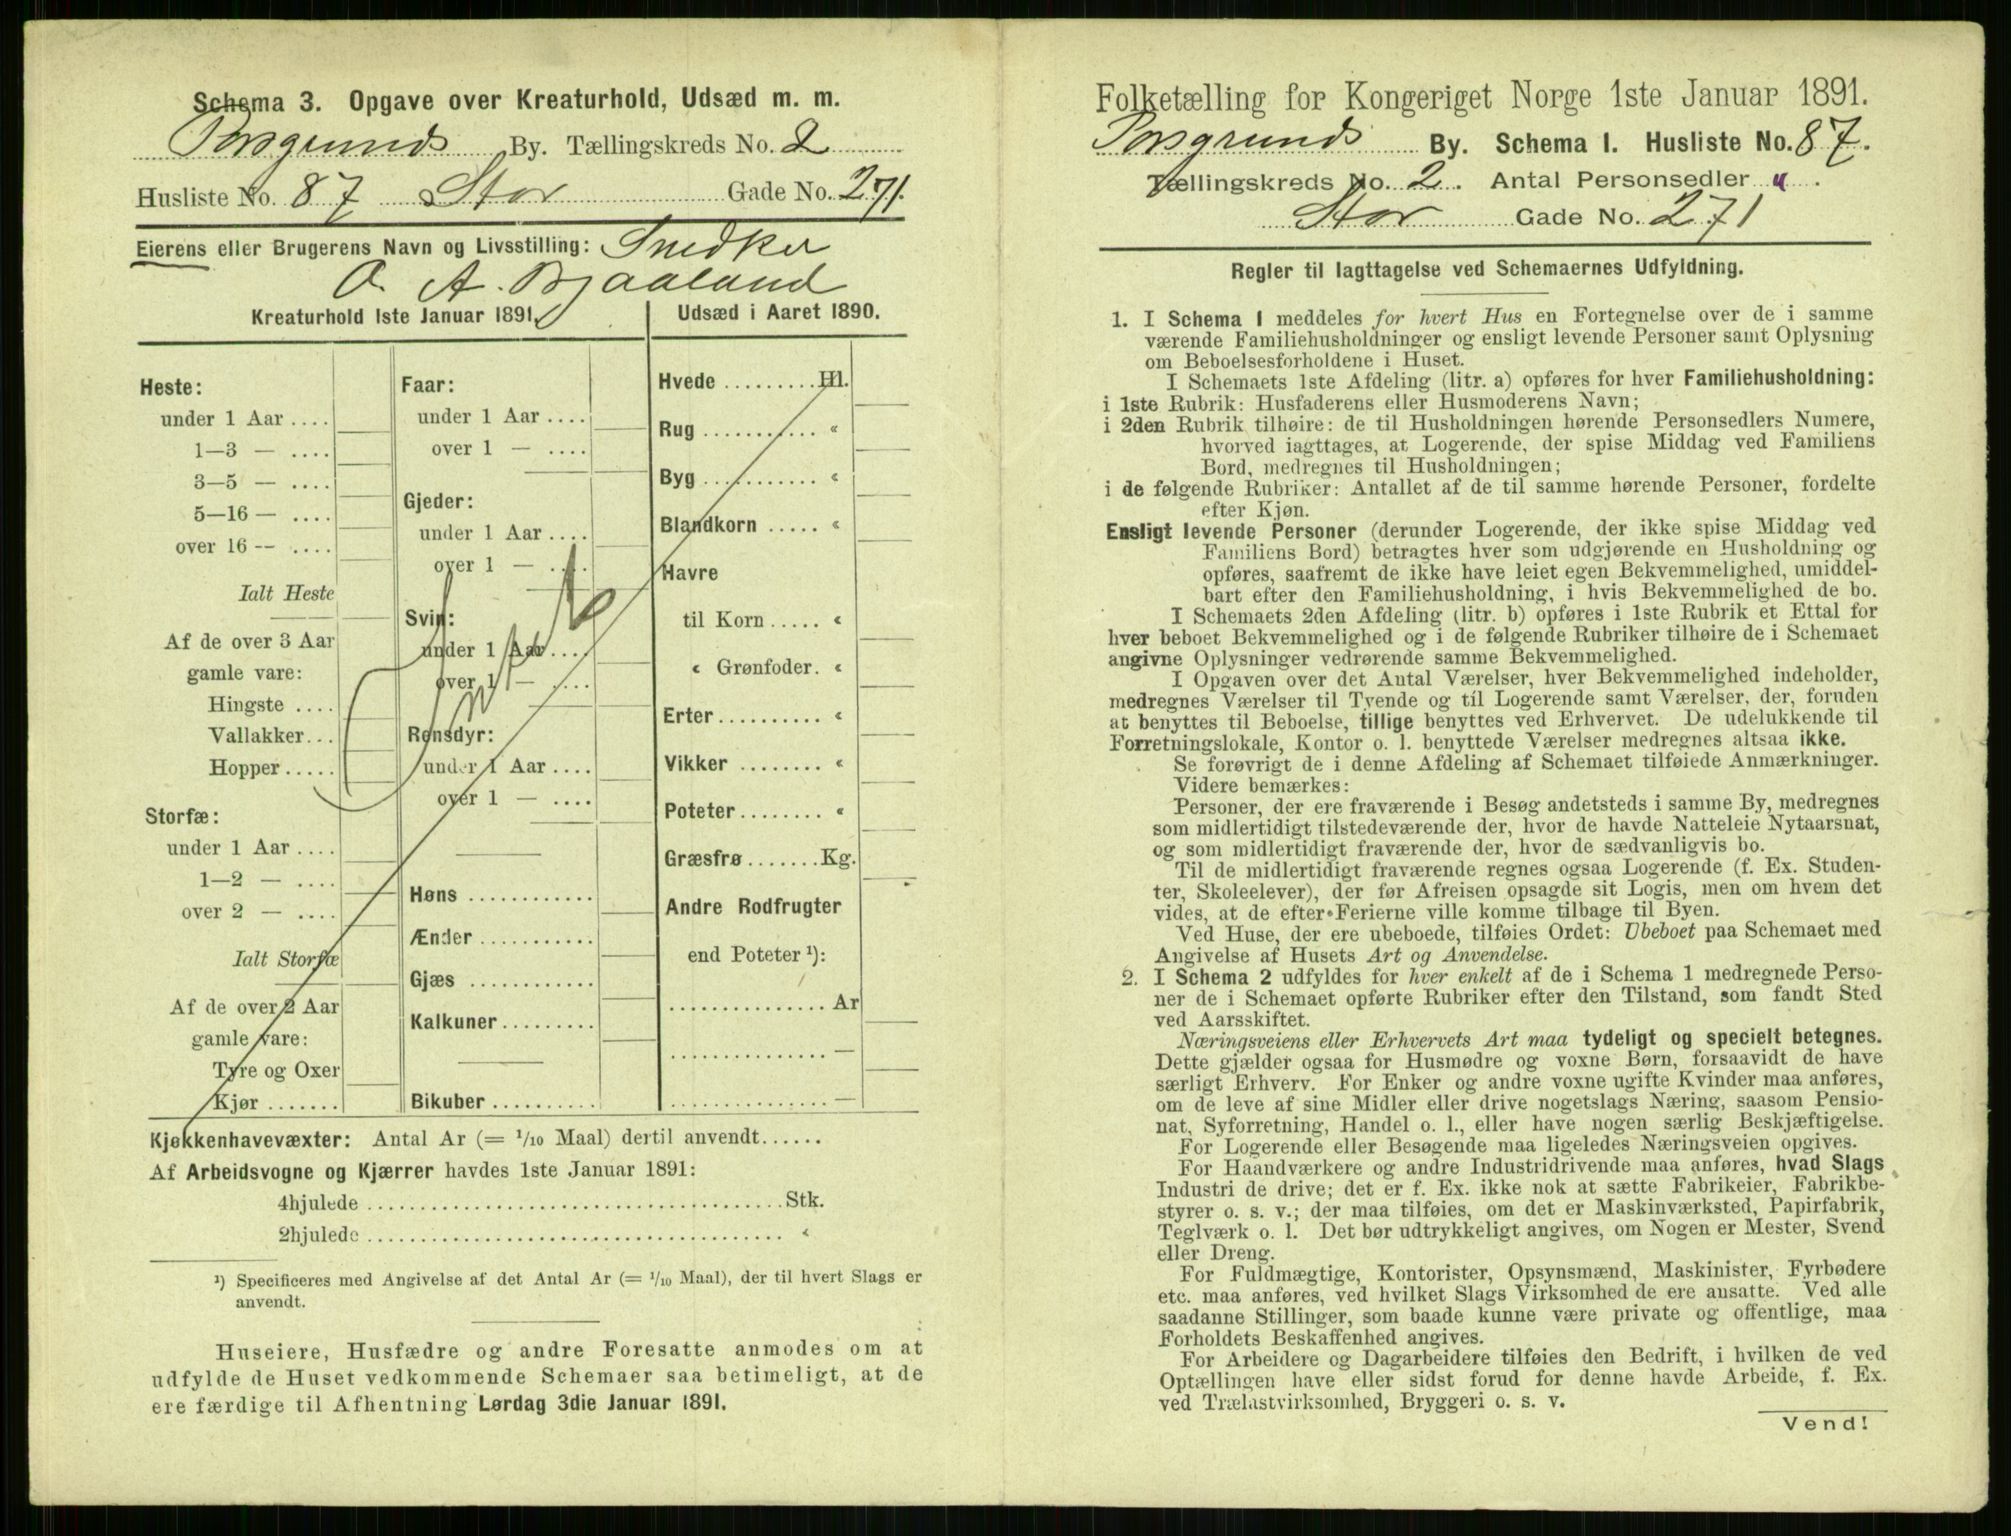 Schema 3. Opgave over Kreaturhold, Udsæd m. m.
Porsgrunds By. Tællingskreds No. 2
Husliste No. 87 Stor Gade No. 271.
Eierens eller Brugerens Navn og Livsstilling: Snedker
O. A. Bjaaland
Kreaturhold 1ste Januar 1891.
Heste:
under 1 Aar ....
1—3 — ....
3—5 — ....
5—16 — ....
over 16 -- ....
Ialt Heste
Af de over 3 Aar
gamle vare:
Hingste ....
Vallakker...
Hopper.....
Storfæ:
under 1 Aar ....
1—2 — ....
over 2 — ....
Ialt Storfæ
Af de over 2 Aar
gamle vare:
Tyre og Oxer
Kjør .......
Faar:
under 1 Aar ....
over 1 — ....
Gjeder:
under 1 Aar ....
over 1 — ....
Svin:
under 1 Aar ....
over 1 — ....
Rensdyr:
under 1 Aar ....
over 1 — ....
Høns ............
Ænder...........
Gjæs ............
Kalkuner.........
Bikuber ..........
Udsæd i Aaret 1890.
Hvede .........Hl.
Rug ........... «
Byg ........... «
Blandkorn ..... «
Havre
til Korn ..... «
« Grønfoder. «
Erter.......... «
Vikker ........ «
Poteter........ «
Græsfrø .......Kg.
Andre Rodfrugter
end Poteter ¹):
............... Ar
............... —
............... —
Kjøkkenhavevæxter: Antal Ar (= 1/10 Maal) dertil anvendt......
Af Arbeidsvogne og Kjærrer havdes 1ste Januar 1891:
4hjulede ......................................Stk.
2hjulede ...................................... «
¹) Specificeres med Angivelse af det Antal Ar (= 1/10 Maal), der til hvert Slags er
anvendt.
Huseiere, Husfædre og andre Foresatte anmodes om at
udfylde de Huset vedkommende Schemaer saa betimeligt, at de
ere færdige til Afhentning Lørdag 3die Januar 1891.
Folketælling for Kongeriget Norge 1ste Januar 1891.
Porsgrunds By. Schema I. Husliste No. 87.
Tællingskreds No. 2. Antal Personsedler 4.
Stor Gade No. 271
Regler til Iagttagelse ved Schemaernes Udfyldning.
1. I Schema 1 meddeles for hvert Hus en Fortegnelse over de i samme
værende Familiehusholdninger og ensligt levende Personer samt Oplysning
om Beboelsesforholdene i Huset.
I Schemaets 1ste Afdeling (litr. a) opføres for hver Familiehusholdning:
i 1ste Rubrik: Husfaderens eller Husmoderens Navn;
i 2den Rubrik tilhøire: de til Husholdningen hørende Personsedlers Numere,
hvorved iagttages, at Logerende, der spise Middag ved Familiens
Bord, medregnes til Husholdningen;
i de følgende Rubriker: Antallet af de til samme hørende Personer, fordelte
efter Kjøn.
Ensligt levende Personer (derunder Logerende, der ikke spise Middag ved
Familiens Bord) betragtes hver som udgjørende en Husholdning og
opføres, saafremt de ikke have leiet egen Bekvemmelighed, umiddel-
bart efter den Familiehusholdning, i hvis Bekvemmelighed de bo.
I Schemaets 2den Afdeling (litr. b) opføres i 1ste Rubrik et Ettal for
hver beboet Bekvemmelighed og i de følgende Rubriker tilhøire de i Schemaet
angivne Oplysninger vedrørende samme Bekvemmelighed.
I Opgaven over det Antal Værelser, hver Bekvemmelighed indeholder,
medregnes Værelser til Tyende og til Logerende samt Værelser, der, foruden
at benyttes til Beboelse, tillige benyttes ved Erhvervet. De udelukkende til
Forretningslokale, Kontor o. l. benyttede Værelser medregnes altsaa ikke.
Se forøvrigt de i denne Afdeling af Schemaet tilføiede Anmærkninger.
Videre bemærkes:
Personer, der ere fraværende i Besøg andetsteds i samme By, medregnes
som midlertidigt tilstedeværende der, hvor de havde Natteleie Nytaarsnat,
og som midlertidigt fraværende der, hvor de sædvanligvis bo.
Til de midlertidigt fraværende regnes ogsaa Logerende (f. Ex. Studen-
ter, Skoleelever), der før Afreisen opsagde sit Logis, men om hvem det
vides, at de efter Ferierne ville komme tilbage til Byen.
Ved Huse, der ere ubeboede, tilføies Ordet: Ubeboet paa Schemaet med
Angivelse af Husets Art og Anvendelse.
2. I Schema 2 udfyldes for hver enkelt af de i Schema 1 medregnede Perso-
ner de i Schemaet opførte Rubriker efter den Tilstand, som fandt Sted
ved Aarsskiftet.
Næringsveiens eller Erhvervets Art maa tydeligt og specielt betegnes.
Dette gjælder ogsaa for Husmødre og voxne Børn, forsaavidt de have
særligt Erhverv. For Enker og andre voxne ugifte Kvinder maa anføres,
om de leve af sine Midler eller drive nogetslags Næring, saasom Pensio-
nat, Syforretning, Handel o. l., eller have nogen særlig Beskjæftigelse.
For Logerende eller Besøgende maa ligeledes Næringsveien opgives.
For Haandværkere og andre Industridrivende maa anføres, hvad Slags
Industri de drive; det er f. Ex. ikke nok at sætte Fabrikeier, Fabrikbe-
styrer o. s. v.; der maa tilføies, om det er Maskinværksted, Papirfabrik,
Teglværk o. l. Det bør udtrykkeligt angives, om Nogen er Mester, Svend
eller Dreng.
For Fuldmægtige, Kontorister, Opsynsmænd, Maskinister, Fyrbødere
etc. maa anføres, ved hvilket Slags Virksomhed de ere ansatte. Ved alle
saadanne Stillinger, som baade kunne være private og offentlige, maa
Forholdets Beskaffenhed angives.
For Arbeidere og Dagarbeidere tilføies den Bedrift, i hvilken de ved
Optællingen have eller sidst forud for denne havde Arbeide, f. Ex.
ved Trælastvirksomhed, Bryggeri o. s. v.
Vend!